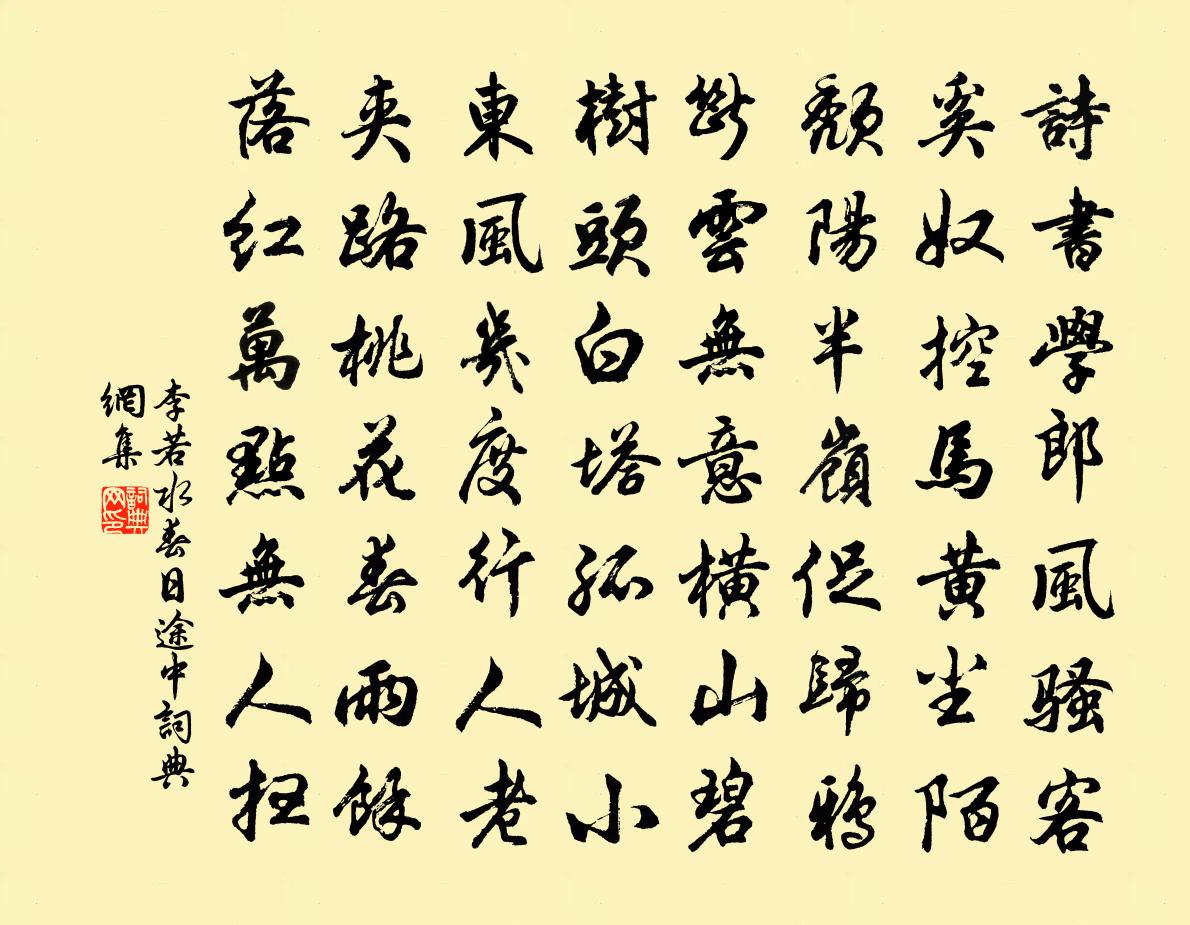 詩書學郎風騷客
奚奴控馬黃尘陌
頹陽半嶺促歸鴉
斷雲無意橫山碧
樹頭白塔孤城小
東風幾度行人老
夾路桃花春雨餘
落红萬點無人扫
李若水春日途中詞典
網集
詞典
网印